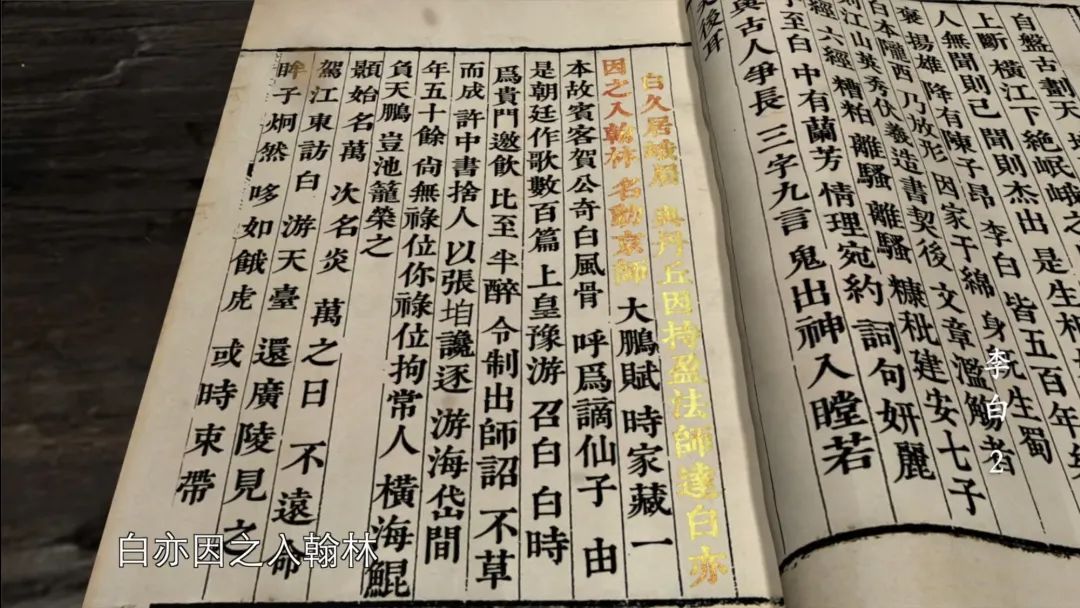 自盤古劃天地
上斷橫江下絕岷峨之
人無聞則已 聞則杰出 是生相
褒揚雄 降有陳子昂 李白 皆五百年
白本隴西 乃放形 因家于綿 身 生蜀
則江山英秀伏羲造書契後 文章濫觴者
經六經 糟粕 離騷 離騷 糠秕建安七子
子至白 中有蘭芳 情理宛約 詞句妍麗
與古人爭長 三字九言 鬼出神入 瞠若
後耳
白久居峨眉 與丹丘因持盈法師達白亦
因之入翰林 名動京師 大鵬賦 時家藏一
本故賓客賀公奇白風骨 呼爲謫仙子 由
是朝廷作歌數百篇 上皇豫游 召白 白時
爲貴門邀飲 比至 半醉 令制出師詔 不草
而成 許中書捨人 以張垍讒逐 游海岱間
年五十餘 尙無祿位你祿位拘常人 橫海鯤
負天鵬 豈池籠榮之
顥始名萬 次名炎 萬之日 不遠命
駕江東訪白 游天臺 還廣陵見之
眸子炯然 哆如餓虎 或時束帶
李白2
白亦因之入翰林